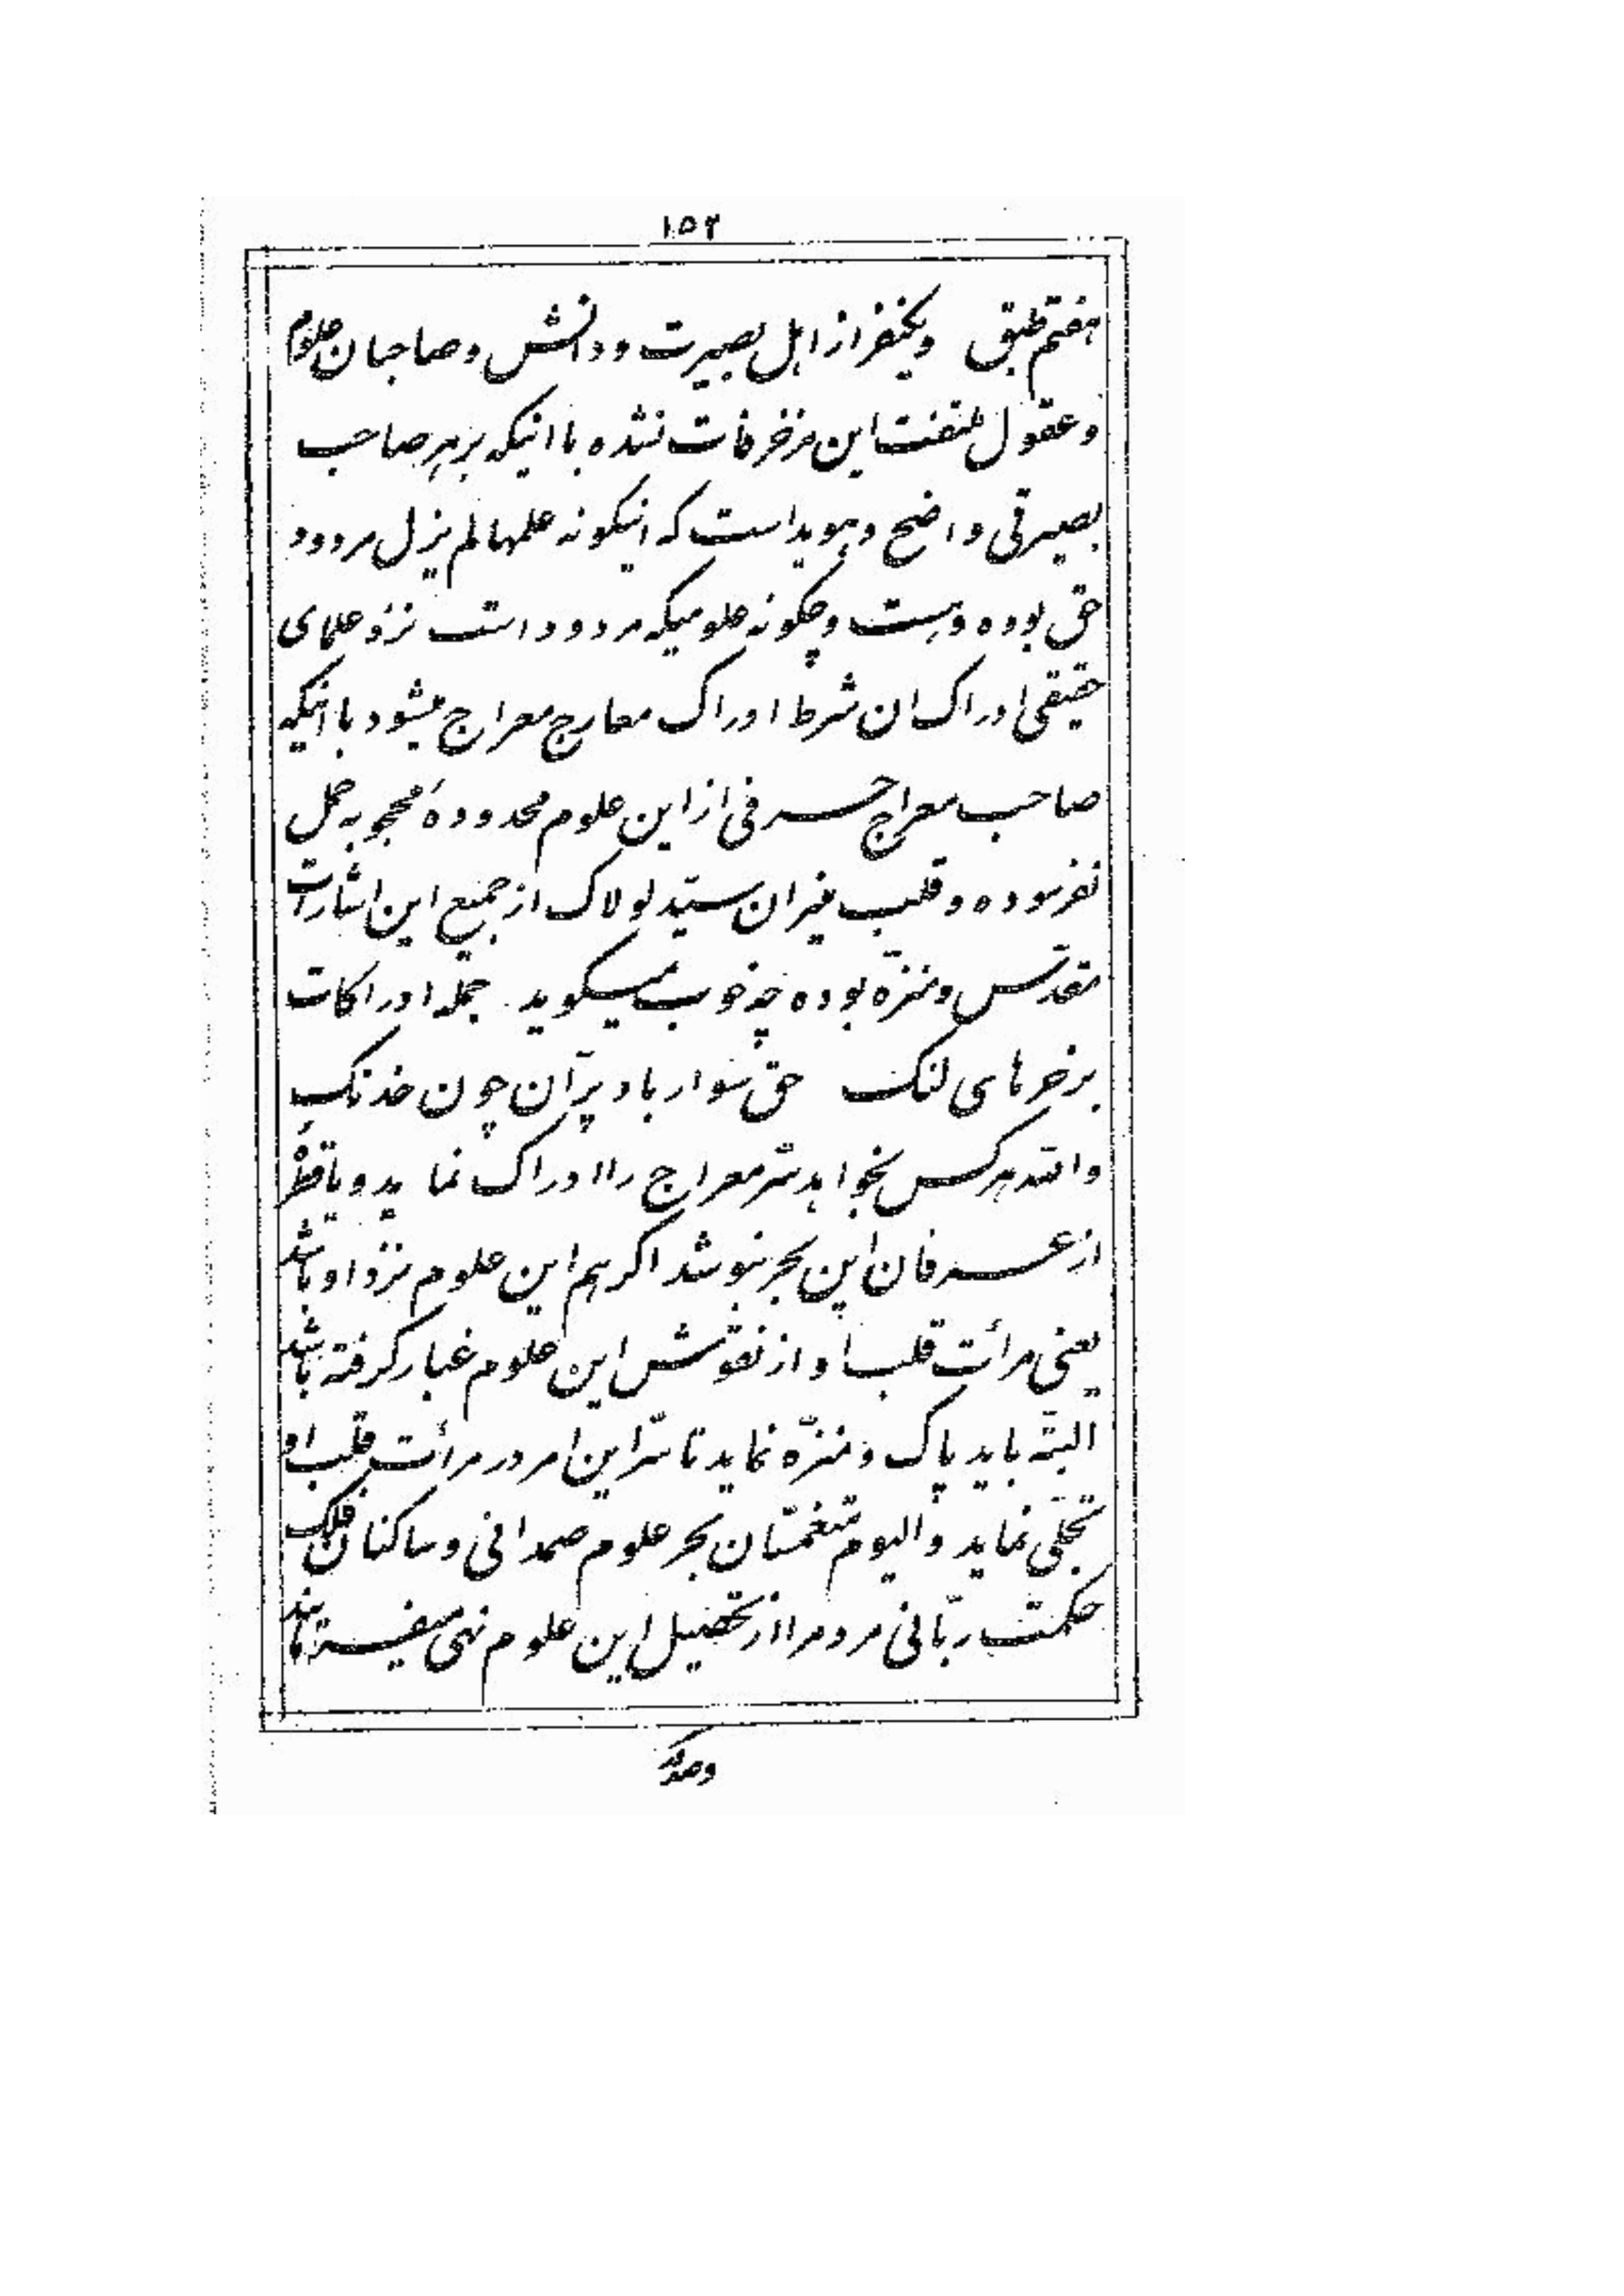 ۱۵۲
هفتم طبق و یکنفر از اهل بصیرت و دانش و صاحبان علوم
و عقول ملتفت این مزخرفات نشده با اینکه بر هر صاحب
بصیرتی واضح و هویداست که اینگونه علمها لم یزل مردود
حق بوده و هست و چگونه علومیکه مردود است نزد علمای
حقیقی ادراک ان شرط ادراک معارج معراج میشود با اینکه
صاحب معراج حرفی از این علوم محدودهٔ محجوبه حمل
نفرموده و قلب منیر ان سیّد لولاک از جمیع این اشارات
مقدّس و منزّه بوده چه خوب میگوید جمله ادراکات
بر خرهای لنگ حق سوار باد پرّان چون خدنگ
والله هر کس بخواهد سرّ معراج را ادراک نماید و یا قطرهٔ
از عرفان این بحر بنوشد اگر هم این علوم نزد او باشد
یعنی مرأت قلب او از نقوش این علوم غبار گرفته باشد
البتّه باید پاک و منزّه نماید تا سرّ این امر در مرأت قلب او
تجلّی نماید و الیوم متغمّسان بحر علوم صمدانی و ساکنان فلک
حکمت ربّانی مردم را از تحصیل این علوم نهی میفرمایند
وصدور